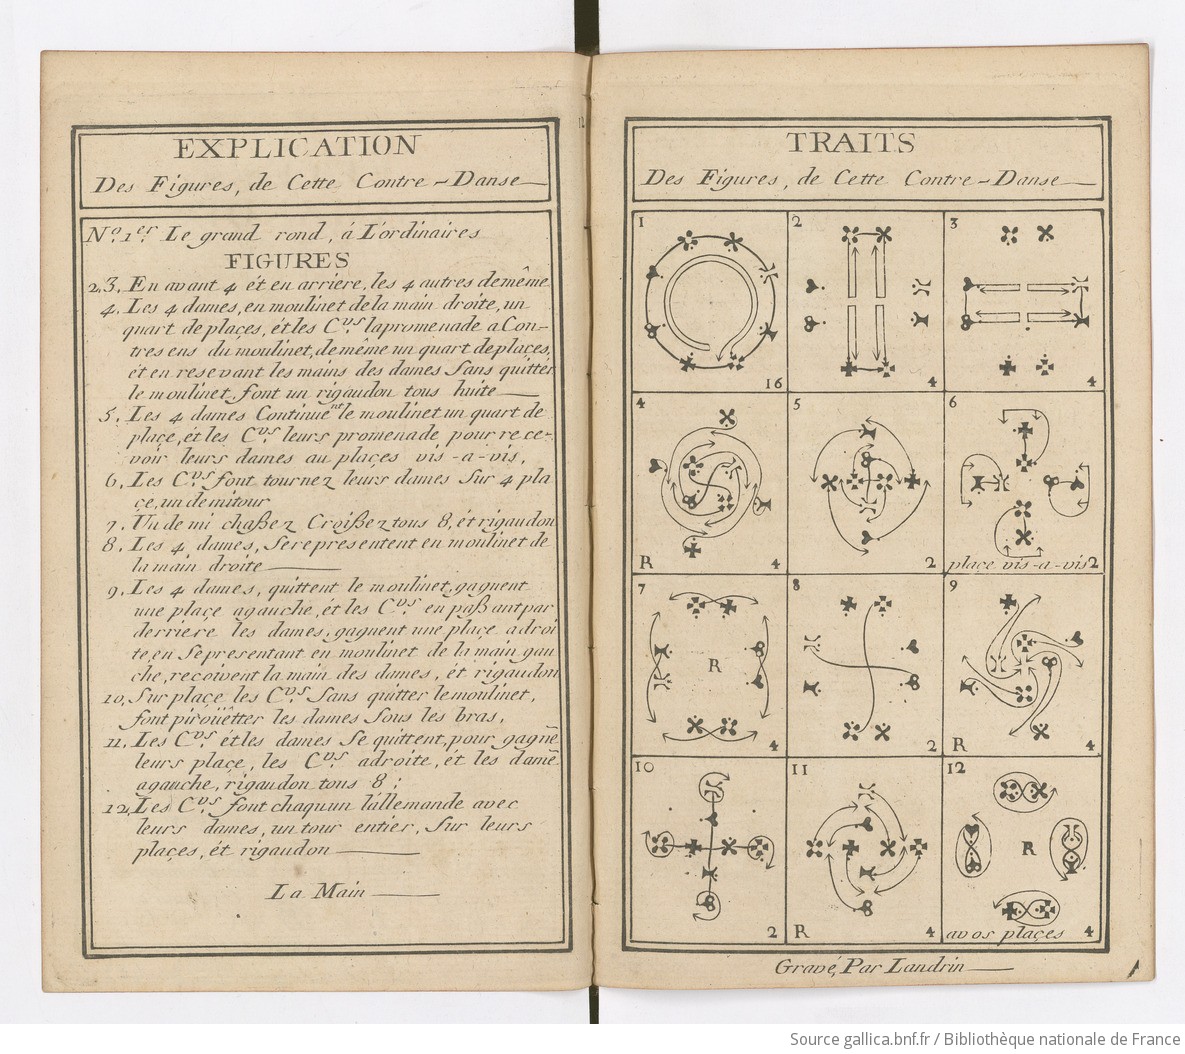 EXPLICATION
Des Figures, de Cette Contre-Danse
No. 1er. Le grand rond, á L'ordinaires
FIGURES
2,3. En avant 4 ét en arriere, les 4 autres demême
4. Les 4 dames, en moulinet dela main droite, un
quart de places, ét les Cvrs. lapromenade a Con-
tresens du moulinet, de même un quart deplaçes,
ét en resevant les mains des dames Sans quittér
le moulinet, font un rigaudon tous huite
5. Les 4 dames Continuent le moulinet un quart de
place, ét les Cvrs. leurs promenade pour rece-
voir leurs dames au plaçes vis-a-vis,
6. Les Cvrs. font tournez leurs dames Sur 4 pla
çe, un demitour
7. Un de mi chaßez Croißez tous 8, ét rigaudon
8. Les 4 dames, Serepresentent en moulinet de
la main droite
9. Les 4 dames, quittent le moulinet, gagnent
une plaçe agauche, ét les Cvrs. en paßant par
derriere les dames, gagnent une plaçe a droi
te, en Sepresentant en moulinet de la main gau
che, reçoivent la main des dames, ét rigaudon
10, Sur plaçe, les Cvrs. Sans quitter le moulinet,
font piroüetter les dames Sous les bras,
11. Les Cvrs. ét les dames Se quittent, pour gagnē
leurs plaçe, les Cvrs. adroite, ét les damē
agauche, rigaudon tous 8;
12, Les Cvrs. font chaqu'un l'állemande avec
leurs dames, un tour entier, Sur leurs
plaçes, ét rigaudon
La Main
TRAITS
Des Figures, de Cette Contre-Danse
1
16
2
4
3
4
4
R
4
5
2
6
place vis-a-vis 2
7
R
4
8
2
9
R
4
10
2
11
R
4
12
R
avos plaçes 4
Gravé, Par Landrin
Source gallica.bnf.fr / Bibliothèque nationale de France